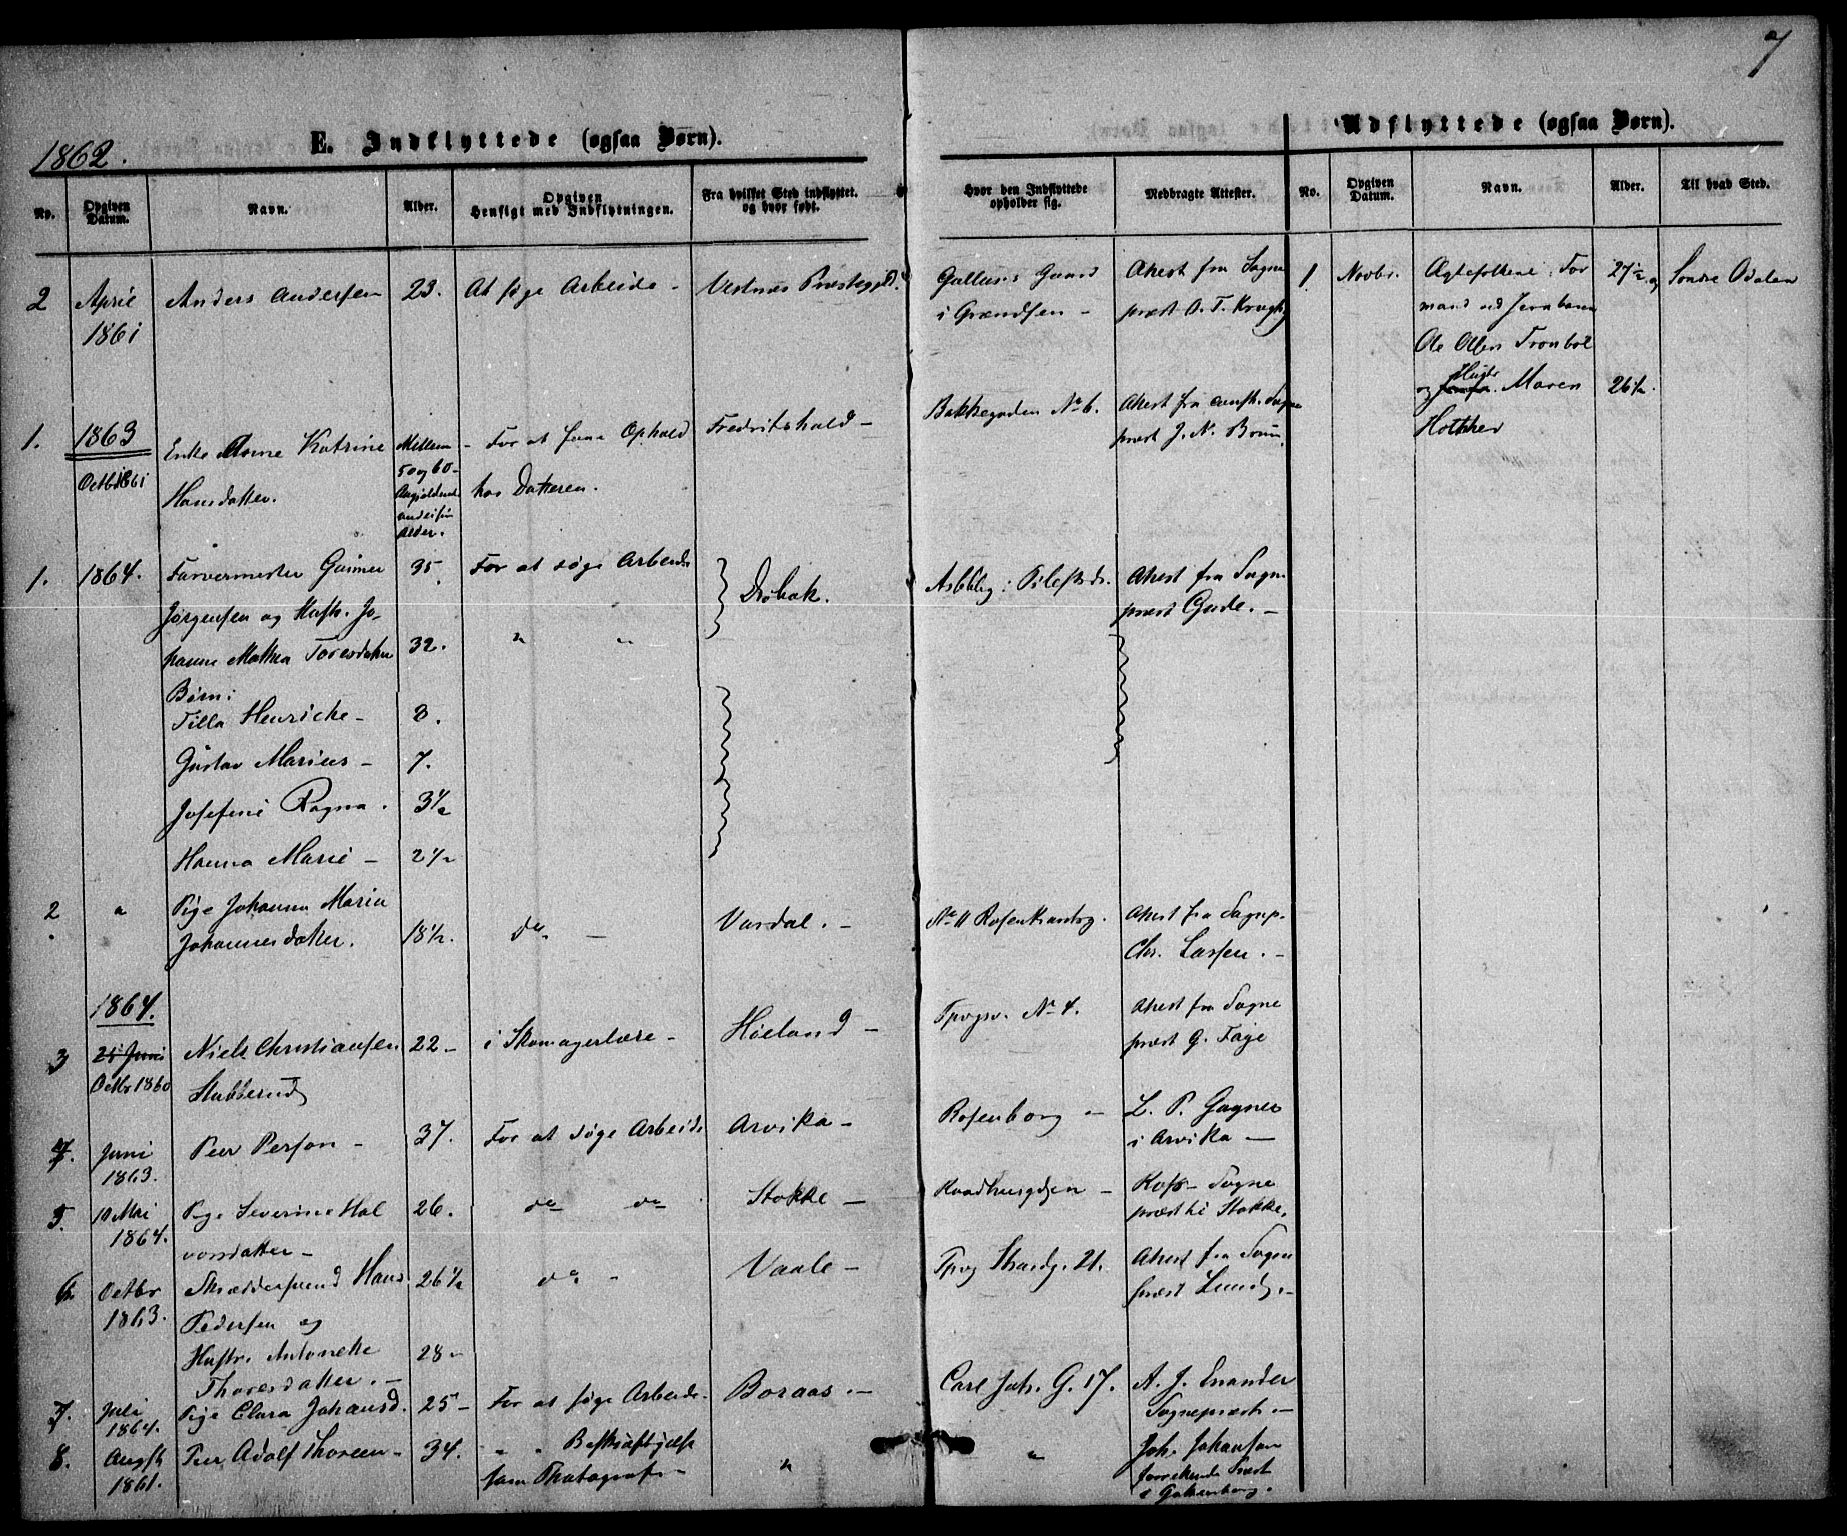 7
1862.
E. Indflyttede (ogsaa Børn).
Udflyttede (ogsaa Børn).
No. Opgiven Datum. Navn. Alder. Opgiven Hensigt med Indflytningen. Fra hvilket Sted indflyttet. og hvor født. Hvor den Indflyttede opholder sig. Medbragte Attester. No. Opgiven Datum. Navn. Alder. Til hvad Sted.
2 April Anders Andersen 23. At søge Arbeide - Vestnæs Præstegjeld.
1861
Gallus's Gaard Attest fra Sogne
i Grændsen - præst O. T. Krogh
1. Novbr. Ægtefolkene: For 27½ og Søndre Odalen
mand ved Jernbanen
Ole Olsen Tronbøl
og Hustr. Maren 26½.
1. 1863 Enke Anne Katrine Mellem - For at faae Ophold Fredrikshald -
Octbr 1861 Hansdatter. 50 og 60 hos Datteren.
Alder.
Bakkegaden No 6. Attest fra const. Sogne
præst J. N. Brun
1. 1864. Farvermester Gunner 35. For at søge Arbeide
Jørgensen og Hustr. Jo- Drøbak.
hanne Mathea Toresdatter 32. " "
Børn:
Tilla Henricke - 8.
Gustav Marius - 7.
Josefine Ragna. 3½
Hanna Marie - 2½
Pilestrd. Attest fra Sogne
præst Gude. -
2 " Pige Johanna Maria
Johannesdatter. 18½. do - Vardal. -
No 11 Rosenkrantzg. Attest fra Sognep.
Chr. Lassen. -
1864.
3 21 Juni Niels Christiansen 22 - i Skomagerlære - Høland -
Octbr 1860 Stubberud
Tpvgv. No 4. Attest fra Sogne
præst G. Faye
4. Juni Peer Person - 37. For at søge Arbeide Arvika -
1863.
Rosenborg - L. P. Gagner
i Arvika -
5. 10 Mai Pige Severine Hal 26. do do Stokke -
1864. vorsdatter -
Raadhusgden - Sogne
præst i Stokke.
6. Octbr Skræddersvend Hans 26½ do - Vaale -
1863. Pedersen og
Hustr. Antonette 28 -
Thoresdatter. -
Tpvg Strandg. 21. Attest fra Sogne
præst Lund. -
7. Juli Pige Clara Johansd. 25 - For at søge Arbeide. Boraas. -
1864.
Carl Joh. G. 17. A. J. Enander
Sognepræst. -
8. Augst Peer Adolf Thoreen - 34. " " Beskjæftigelse "
1861. som Photograf -
" Joh. Johansson
Præst
i Gothenborg.